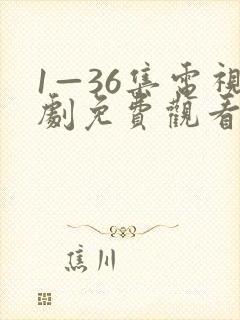 1—36集電視
劇免費觀看
焦川